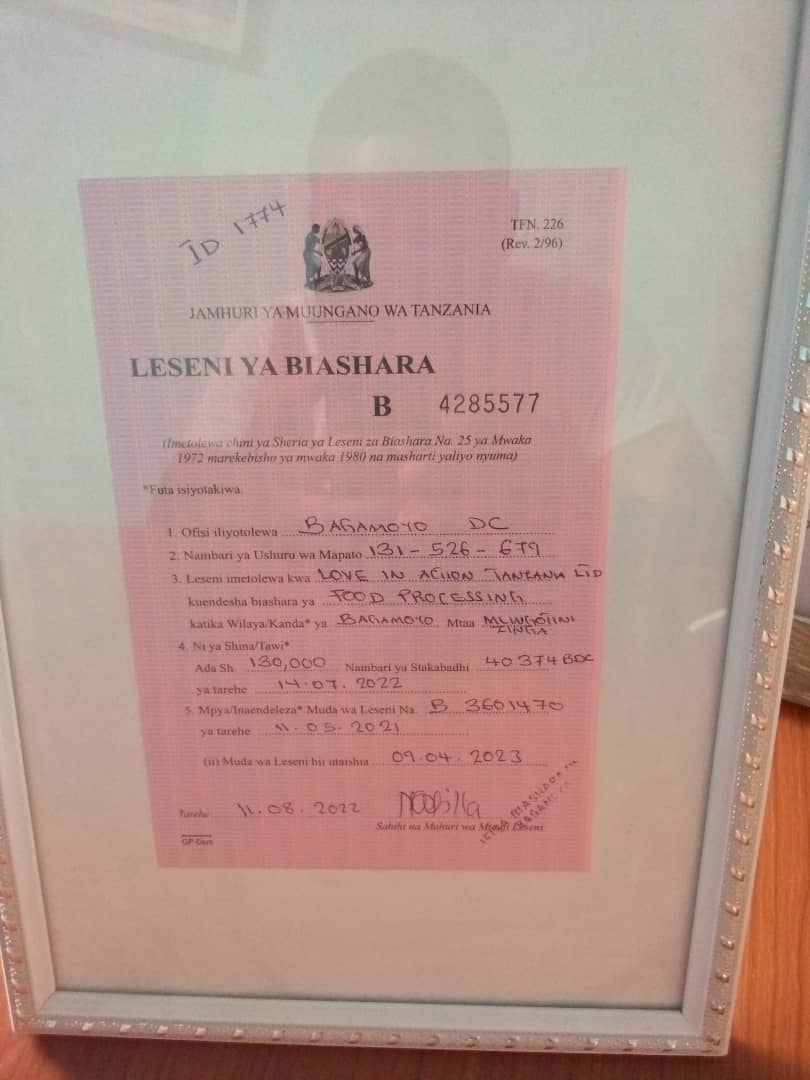 ID 1774
TFN. 226
(Rev. 2/96)
JAMHURI YA MUUNGANO WA TANZANIA
LESENI YA BIASHARA
B 4285577
(Imetolewa chini ya Sheria ya Leseni za Biashara Na. 25 ya Mwaka
1972 marekebisho ya mwaka 1980 na masharti yaliyo nyuma)
*Futa isiyotakiwa
1. Ofisi iliyotolewa BAGAMOYO DC
2. Nambari ya Ushuru wa Mapato 131-526-679
3. Leseni imetolewa kwa LOVE IN ACTION TANZANIA LTD
kuendesha biashara ya FOOD PROCESSING
katika Wilaya/Kanda* ya BAGAMOYO Mtaa
ZINGA
4. Ni ya Shina/Tawi*
Ada Sh. 130,000 Nambari ya Stakabadhi 40374BDC
ya tarehe 14.07.2022
5. Mpya/Inaendeleza* Muda wa Leseni Na. B 3601470
ya tarehe 11.05.2021
(ii) Muda wa Leseni hii utaishia 09.04.2023
Tarehe 11.08.2022
Sahihi na Muhuri wa Leseni
BIASHARA
BAGAMOYO